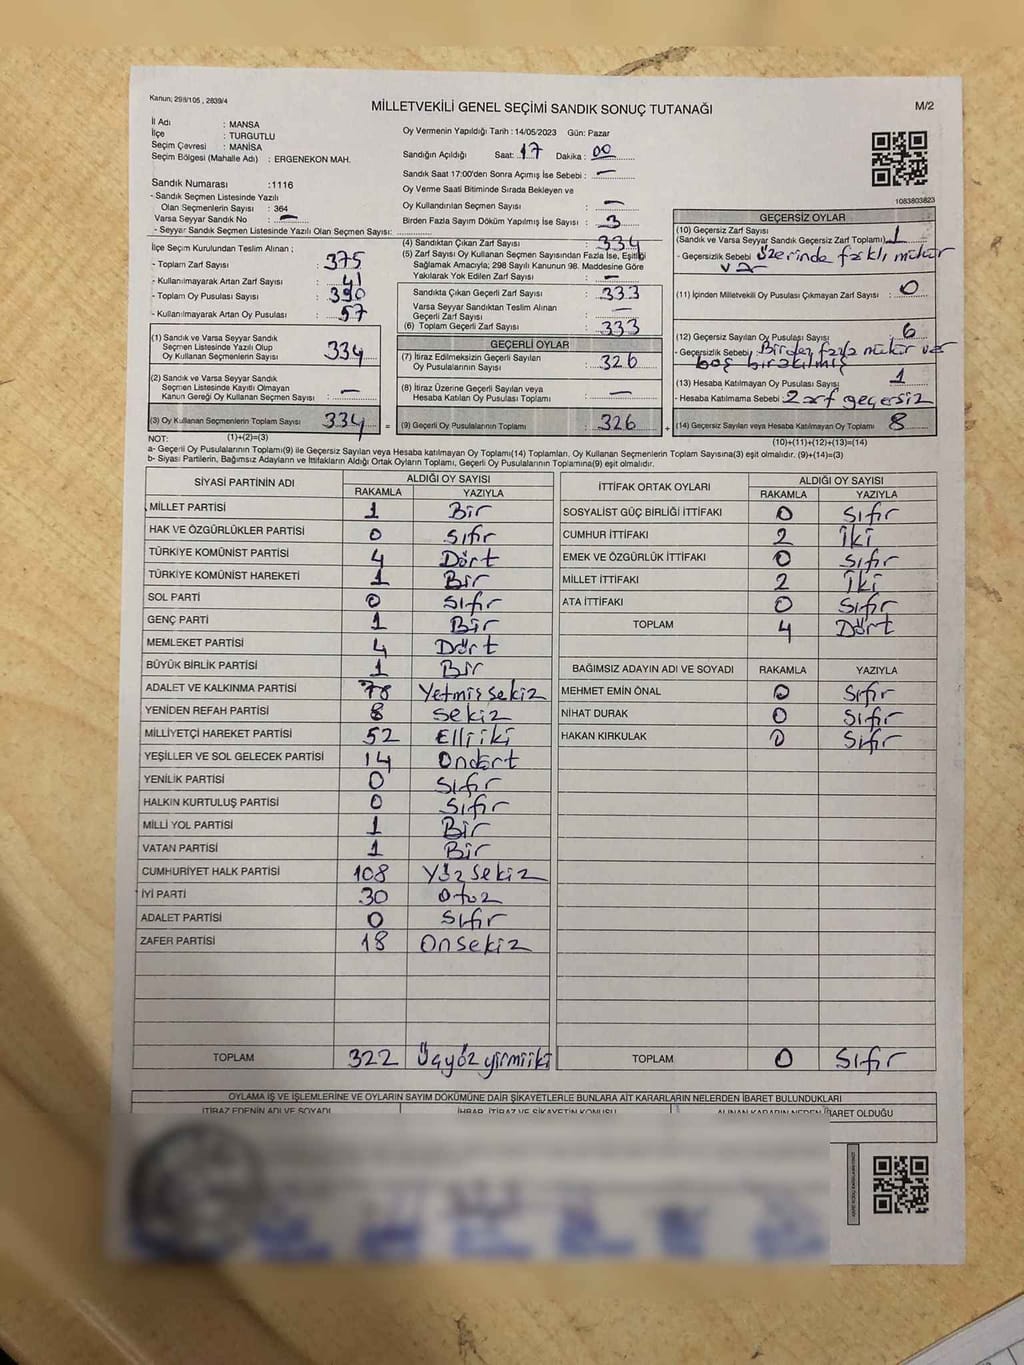 Kanun; 298/105 , 2839/4
MİLLETVEKİLİ GENEL SEÇİMİ SANDIK SONUÇ TUTANAĞI
M/2
İl Adı : MANSA
İlçe : TURGUTLU
Seçim Çevresi : MANİSA
Seçim Bölgesi (Mahalle Adı) : ERGENEKON MAH.
Sandık Numarası :1116
- Sandık Seçmen Listesinde Yazılı
Olan Seçmenlerin Sayısı : 364
Varsa Seyyar Sandık No : —
- Seyyar Sandık Seçmen Listesinde Yazılı Olan Seçmen Sayısı:
Oy Vermenin Yapıldığı Tarih : 14/05/2023 Gün: Pazar
Sandığın Açıldığı Saat: 17 Dakika : 00
Sandık Saat 17:00'den Sonra Açımış İse Sebebi : —
Oy Verme Saati Bitiminde Sırada Bekleyen ve
Oy Kullandırılan Seçmen Sayısı : —
Birden Fazla Sayım Döküm Yapılmış İse Sayısı : 3
1083803823
İlçe Seçim Kurulundan Teslim Alınan ;
- Toplam Zarf Sayısı : 375
- Kullanılmayarak Artan Zarf Sayısı : 41
- Toplam Oy Pusulası Sayısı : 390
- Kullanılmayarak Artan Oy Pusulası : 57
(1) Sandık ve Varsa Seyyar Sandık
Seçmen Listesinde Yazılı Olup
Oy Kullanan Seçmenlerin Sayısı : 334
(2) Sandık ve Varsa Seyyar Sandık
Seçmen Listesinde Kayıtlı Olmayan
Kanun Gereği Oy Kullanan Seçmen Sayısı : —
(3) Oy Kullanan Seçmenlerin Toplam Sayısı 334 =
(4) Sandıktan Çıkan Zarf Sayısı : 334
(5) Zarf Sayısı Oy Kullanan Seçmen Sayısından Fazla İse, Eşitliği
Sağlamak Amacıyla; 298 Sayılı Kanunun 98. Maddesine Göre
Yakılarak Yok Edilen Zarf Sayısı : —
Sandıkta Çıkan Geçerli Zarf Sayısı : 333
Varsa Seyyar Sandıktan Teslim Alınan
Geçerli Zarf Sayısı : —
(6) Toplam Geçerli Zarf Sayısı : 333
GEÇERLİ OYLAR
(7) İtiraz Edilmeksizin Geçerli Sayılan
Oy Pusulalarının Sayısı : 326
(8) İtiraz Üzerine Geçerli Sayılan veya
Hesaba Katılan Oy Pusulası Toplamı : —
(9) Geçerli Oy Pusulalarının Toplamı : 326 +
GEÇERSİZ OYLAR
(10) Geçersiz Zarf Sayısı
(Sandık ve Varsa Seyyar Sandık Geçersiz Zarf Toplamı) 1
- Geçersizlik Sebebi : Üzerinde farklı mühür
var
(11) İçinden Milletvekili Oy Pusulası Çıkmayan Zarf Sayısı : 0
(12) Geçersiz Sayılan Oy Pusulası Sayısı : 6
- Geçersizlik Sebebi : Birden fazla mühür ver
boş bırakılmış
(13) Hesaba Katılmayan Oy Pusulası Sayısı : 1
- Hesaba Katılmama Sebebi : Zarf geçersiz
(14) Geçersiz Sayılan veya Hesaba Katılmayan Oy Toplamı : 8
NOT: (1)+(2)=(3)
(10)+(11)+(12)+(13)=(14)
a- Geçerli Oy Pusulalarının Toplamı(9) ile Geçersiz Sayılan veya Hesaba katılmayan Oy Toplamı(14) Toplamları, Oy Kullanan Seçmenlerin Toplam Sayısına(3) eşit olmalıdır. (9)+(14)=(3)
b- Siyasi Partilerin, Bağımsız Adayların ve İttifakların Aldığı Ortak Oyların Toplamı, Geçerli Oy Pusulalarının Toplamına(9) eşit olmalıdır.
SİYASİ PARTİNİN ADI ALDIĞI OY SAYISI
RAKAMLA YAZIYLA
MİLLET PARTİSİ 1 Bir
HAK VE ÖZGÜRLÜKLER PARTİSİ 0 Sıfır
TÜRKİYE KOMÜNİST PARTİSİ 4 Dört
TÜRKİYE KOMÜNİST HAREKETİ 1 Bir
SOL PARTİ 0 Sıfır
GENÇ PARTİ 1 Bir
MEMLEKET PARTİSİ 4 Dört
BÜYÜK BİRLİK PARTİSİ 1 Bir
ADALET VE KALKINMA PARTİSİ 78 Yetmiş sekiz
YENİDEN REFAH PARTİSİ 8 Sekiz
MİLLİYETÇİ HAREKET PARTİSİ 52 Elliiki
YEŞİLLER VE SOL GELECEK PARTİSİ 14 Ondört
YENİLİK PARTİSİ 0 Sıfır
HALKIN KURTULUŞ PARTİSİ 0 Sıfır
MİLLİ YOL PARTİSİ 1 Bir
VATAN PARTİSİ 1 Bir
CUMHURİYET HALK PARTİSİ 108 Yüz sekiz
İYİ PARTİ 30 Otuz
ADALET PARTİSİ 0 Sıfır
ZAFER PARTİSİ 18 Onsekiz
TOPLAM 322 Üçyüz yirmiiki
İTTİFAK ORTAK OYLARI ALDIĞI OY SAYISI
RAKAMLA YAZIYLA
SOSYALİST GÜÇ BİRLİĞİ İTTİFAKI 0 Sıfır
CUMHUR İTTİFAKI 2 İki
EMEK VE ÖZGÜRLÜK İTTİFAKI 0 Sıfır
MİLLET İTTİFAKI 2 İki
ATA İTTİFAKI 0 Sıfır
TOPLAM 4 Dört
BAĞIMSIZ ADAYIN ADI VE SOYADI RAKAMLA YAZIYLA
MEHMET EMİN ÖNAL 0 Sıfır
NİHAT DURAK 0 Sıfır
HAKAN KIRKULAK 0 Sıfır
TOPLAM 0 Sıfır
OYLAMA İŞ VE İŞLEMLERİNE VE OYLARIN SAYIM DÖKÜMÜNE DAİR ŞİKAYETLERLE BUNLARA AİT KARARLARIN NELERDEN İBARET BULUNDUKLARI
İTİRAZ EDENİN ADI VE SOYADI İHBAR, İTİRAZ VE ŞİKAYETİN KONUSU ALINAN KARARIN NEDEN İBARET OLDUĞU